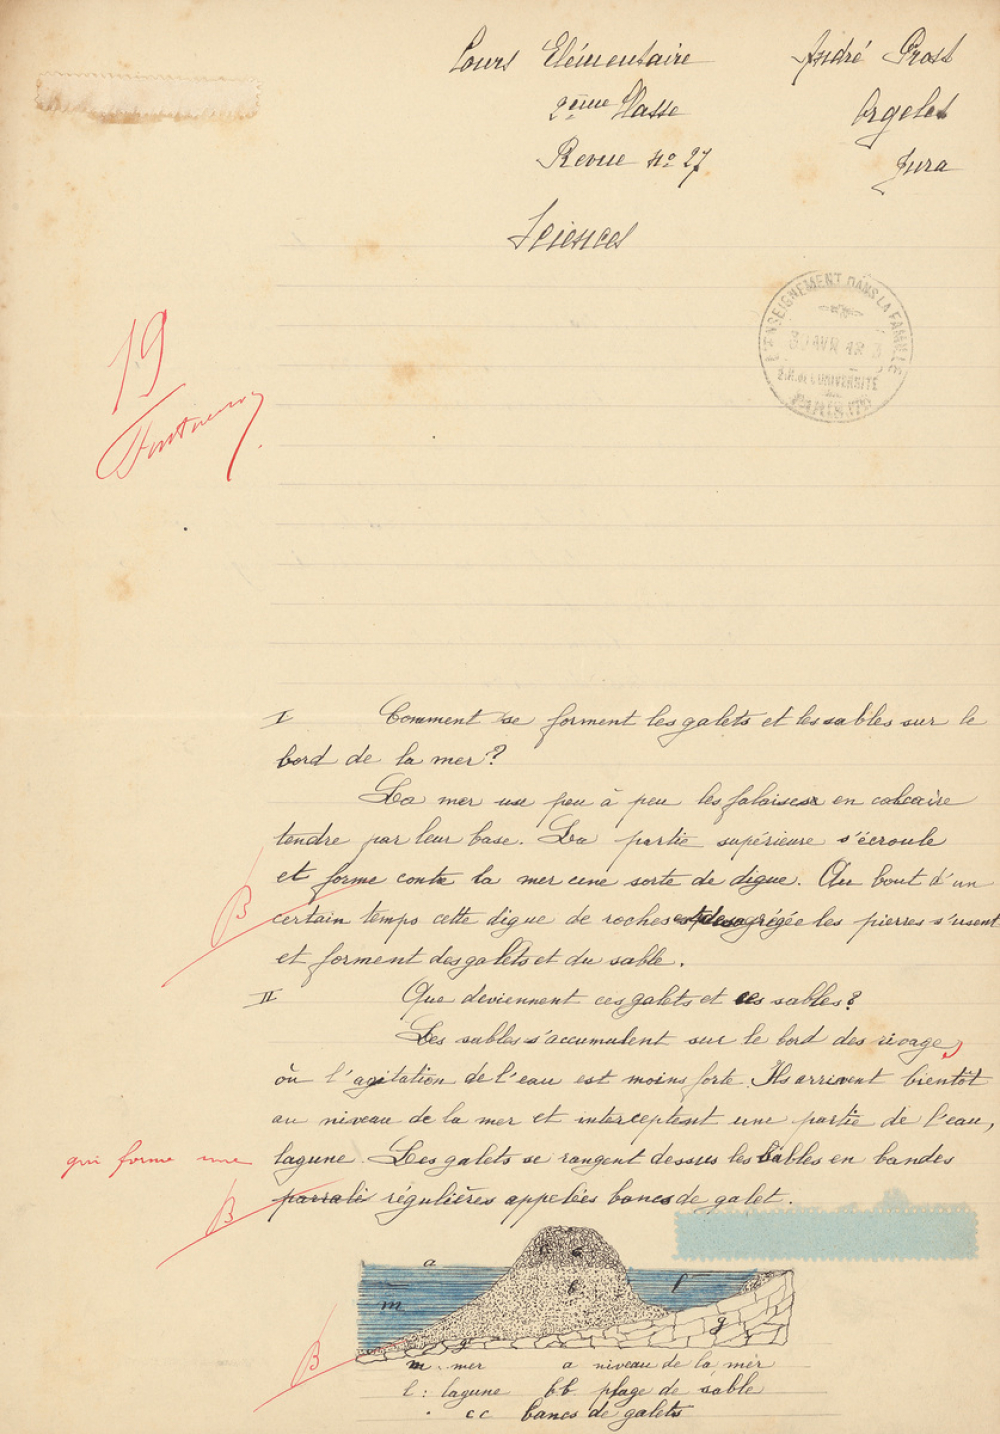 Cours Elémentaire
André Prost
2ème Classe
Orgelet
Revue Nº 27
Jura
Sciences
L'ENSEIGNEMENT DANS LA FAMILLE
AVR
DE L'UNIVERSITÉ
PARIS
19
I Comment se forment les galets et les sables sur le
bord de la mer?
La mer use peu à peu les falaises en calcaire
tendre par leur base. La partie supérieure s'écroule
et forme contre la mer une sorte de digue. Au bout d'un
B
certain temps cette digue de roches est desagrégée les pierres s'usent
et forment des galets et du sable.
II Que deviennent ces galets et ces sables?
Les sables s'accumulent sur le bord des rivages,
où l'agitation de l'eau est moins forte. Ils arrivent bientôt
au niveau de la mer et interceptent une partie de l'eau,
qui forme une lagune. Les galets se rangent dessus les sables en bandes
parralé régulières appelées bancs de galet.
B
a
c c
m
b
l
g
g
B
m : mer a niveau de la mer
l : lagune bb plage de sable
cc bancs de galets